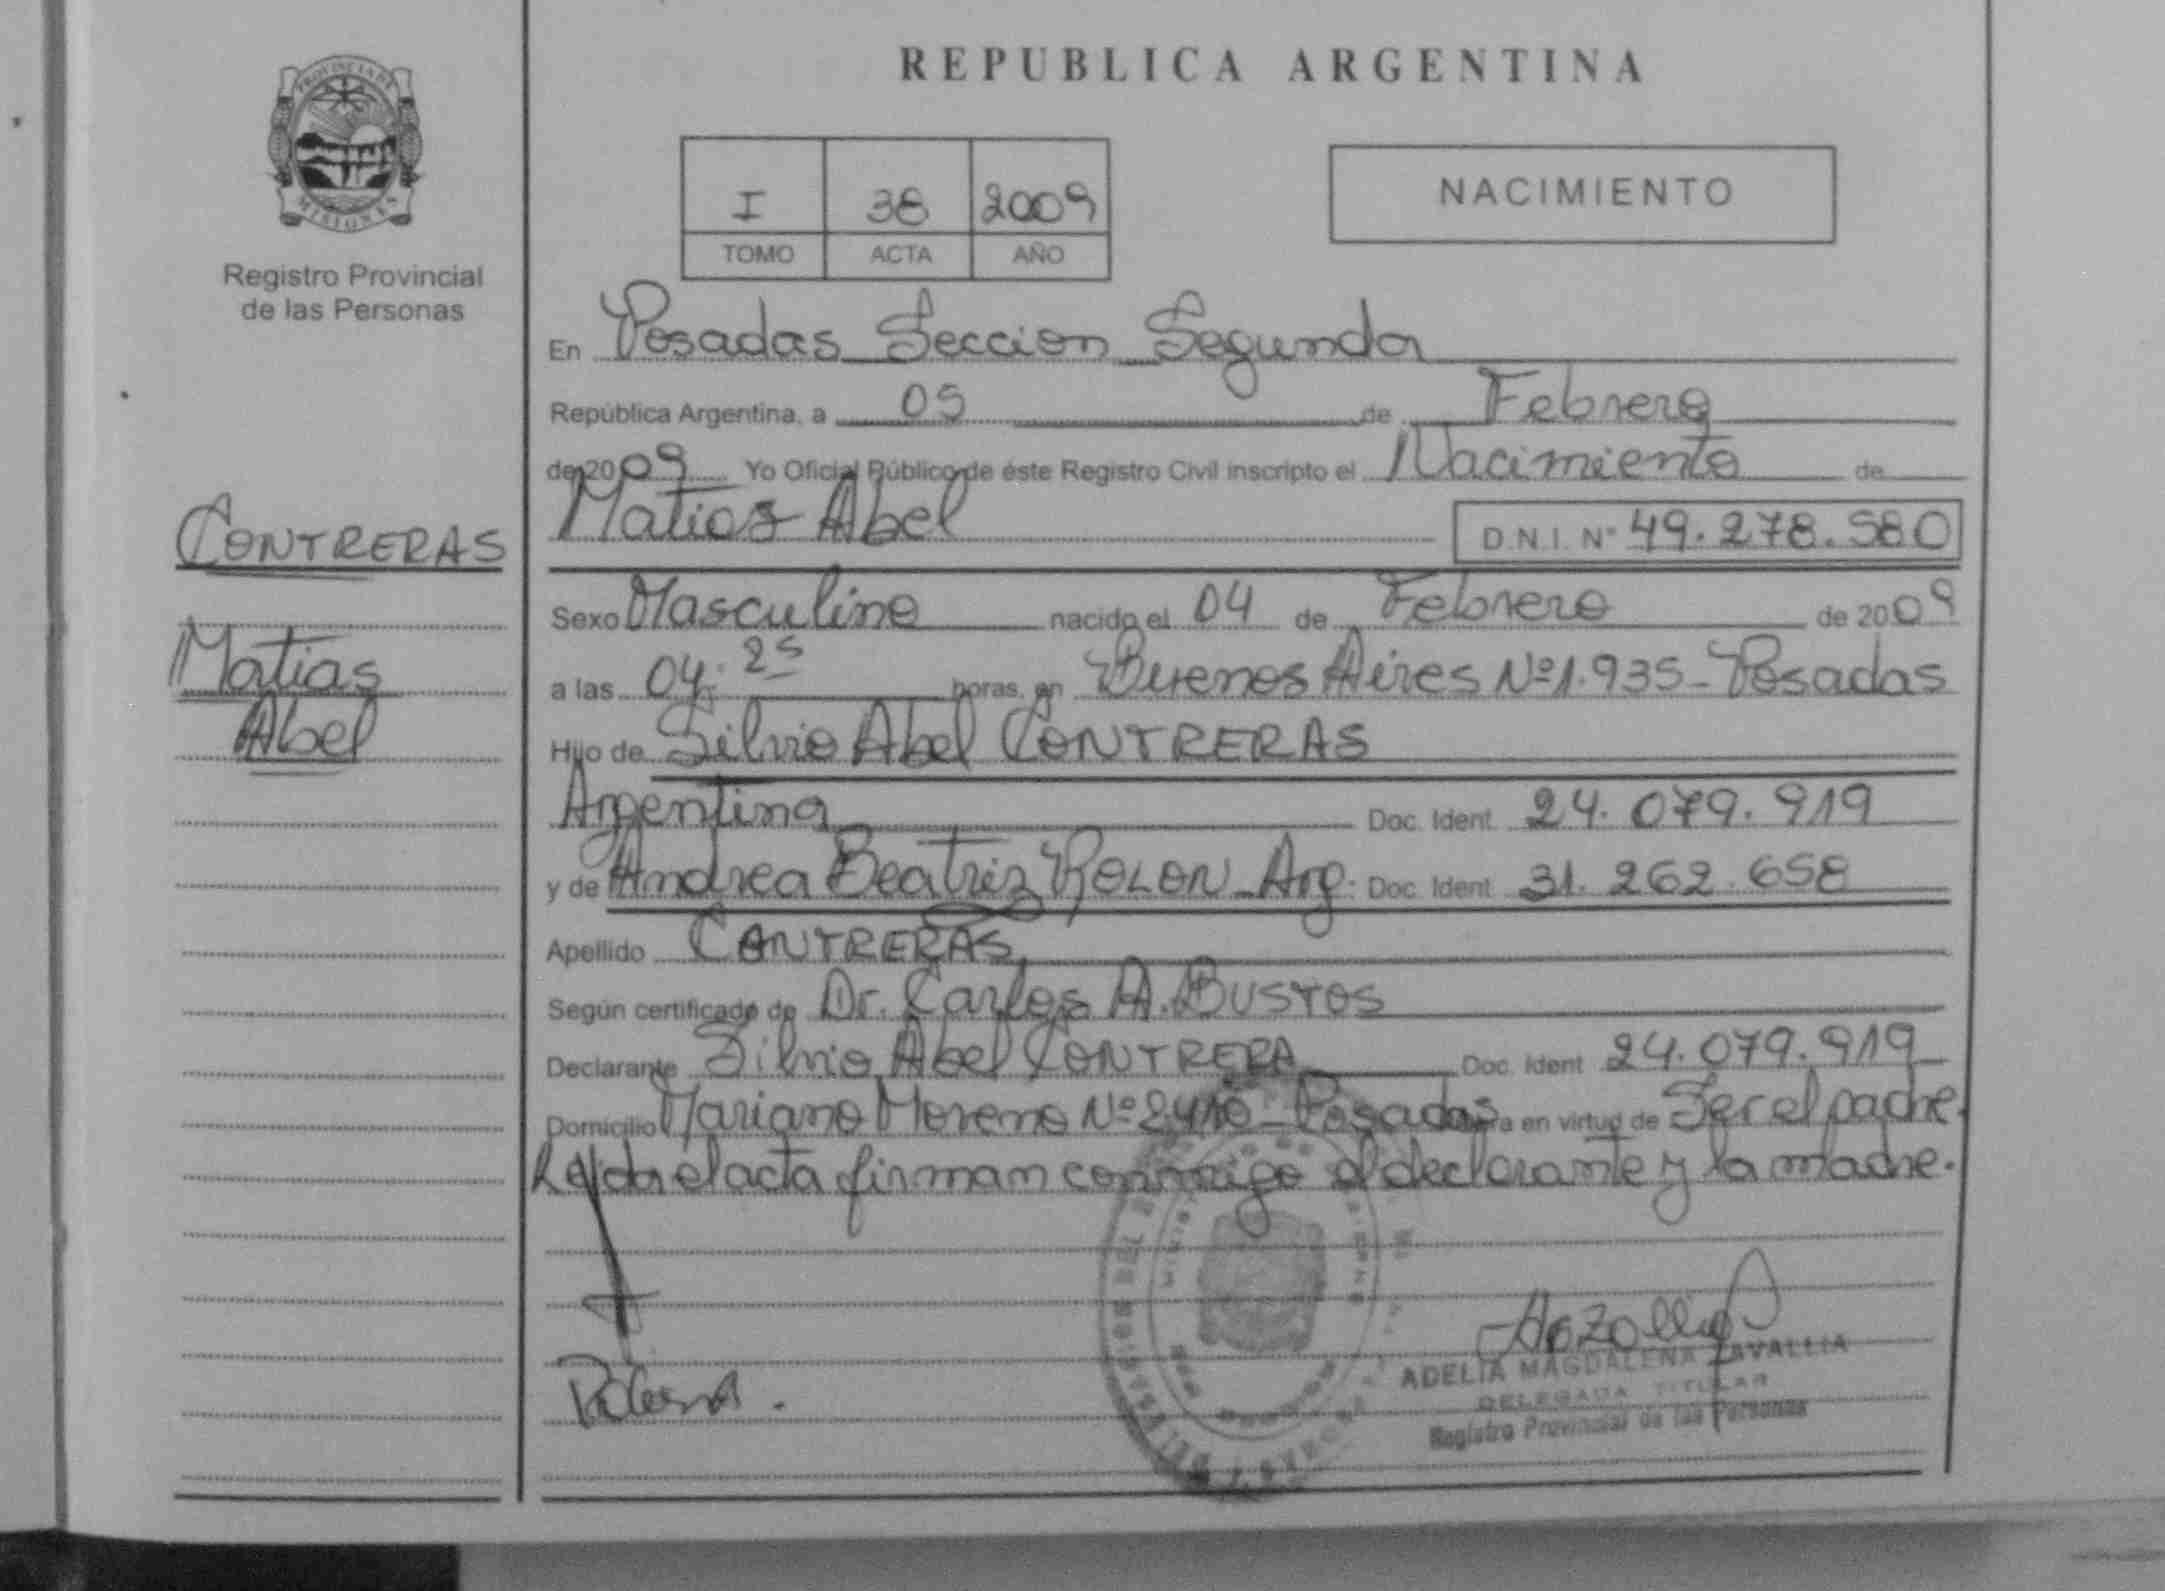 PROVINCIA DE
MISIONES
Registro Provincial
de las Personas
CONTRERAS
Matias
Abel
REPUBLICA ARGENTINA
I 38 2009
TOMO ACTA AÑO
NACIMIENTO
En Posadas Seccion Segunda
República Argentina, a 05 de Febrero
de 2009 Yo Oficial Público de éste Registro Civil inscripto el Nacimiento de
Matias Abel D.N.I. Nº 49.278.580
Sexo Masculino nacido el 04 de Febrero de 2009
a las 04:25 horas, en Buenos Aires Nº 1.935 - Posadas
Hijo de Silvio Abel CONTRERAS
Argentina Doc. Ident. 24.079.919
y de Andrea Beatriz ROLON - Arg. Doc. Ident. 31.262.658
Apellido CONTRERAS
Según certificado de Dr. Carlos A. BUSTOS
Declarante Silvio Abel CONTRERA Doc. Ident. 24.079.919
Domicilio Mariano Moreno Nº 2410 - Posadas en virtud de Ser el padre.
Leida el acta firman conmigo el declarante y la madre.
ADELIA MAGDALENA ZAVALLIA
DELEGADA TITULAR
Registro Provincial de las Personas